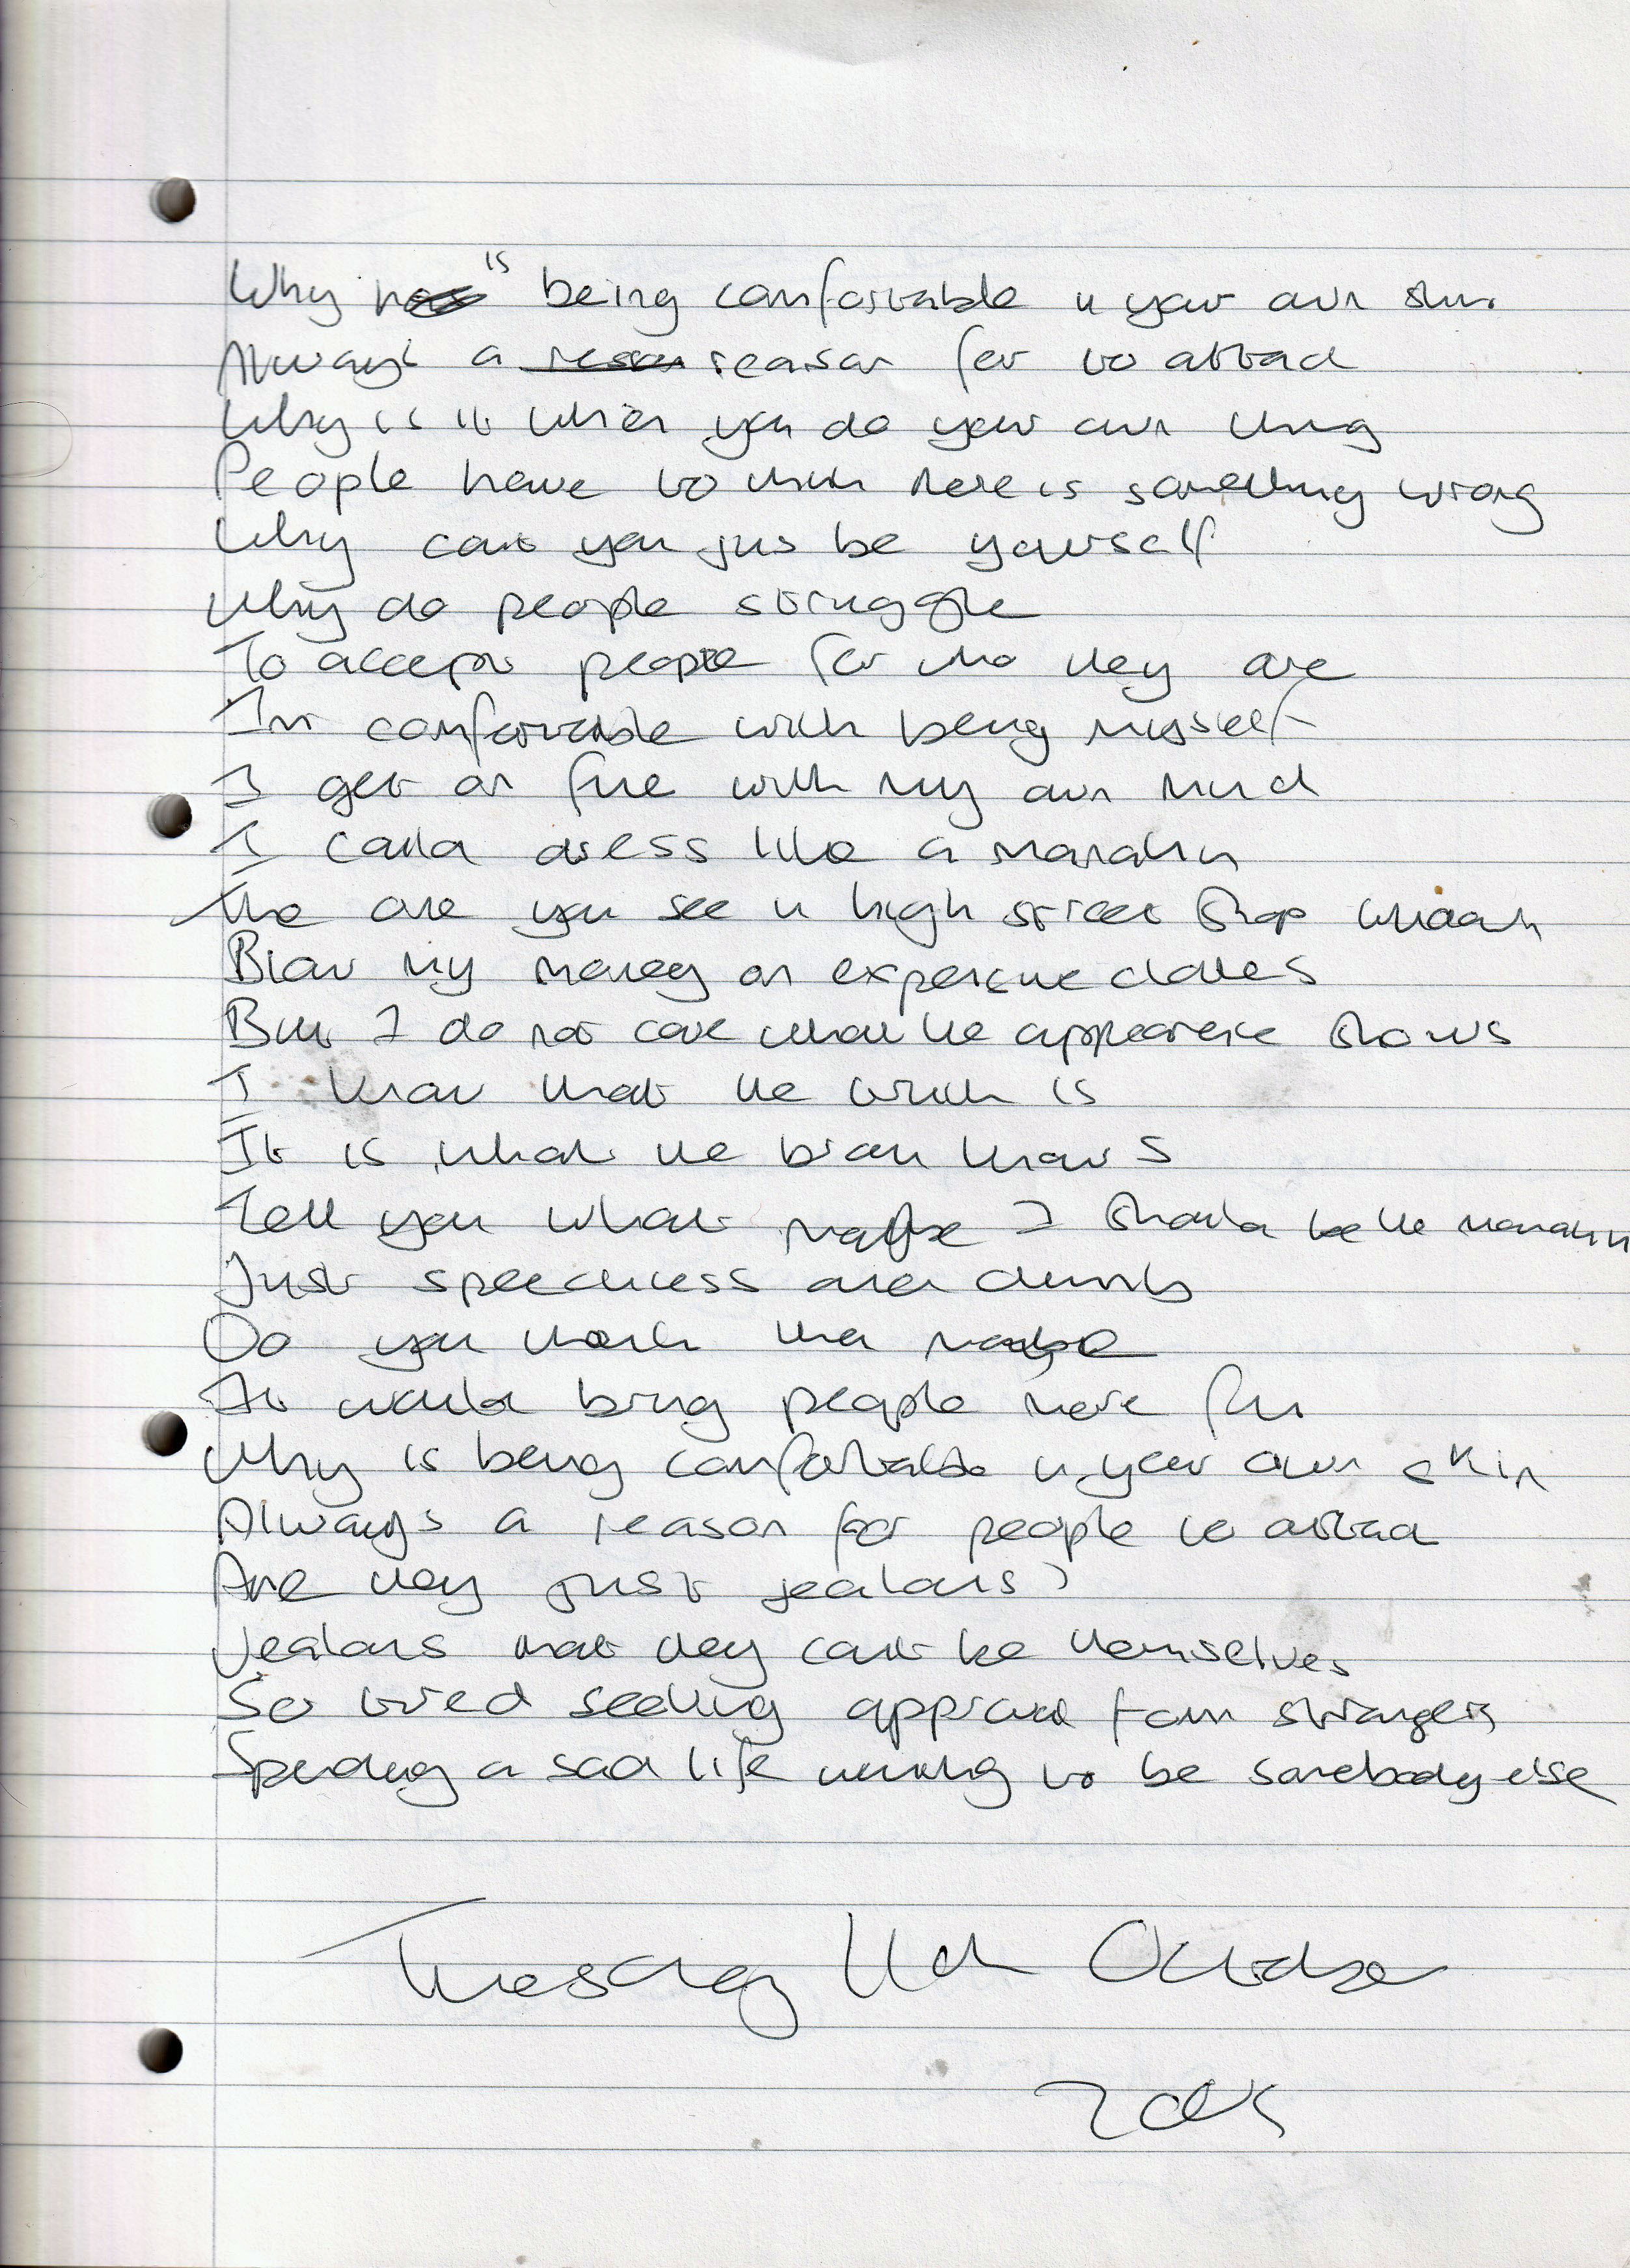 Why is being comfortable in your own skin
Always a reason for to attack
Why is it when you do your own thing
People have to think there is something wrong
Why cant you just be yourself
Why do people struggle
To accept people for who they are
Im comfortable with being myself
I get on fine with my own mind
I could dress like a manakin
The one you see in high street shop window
Blow my money on expensive clothes
But I do not care what the appearence shows
I know that the truth is
It is what the brain knows
Tell you what maybe I should be the manakin
Just speechless and dumb
Do you think then maybe
It would bring people more fun
Why is being comfortable in your own skin
Always a reason for people to attack
Are they just jealous?
Jealous that they cant be themselves
So tired seeking approval from strangers
Spending a sad life wanting to be somebody else
Tuesday 11th October